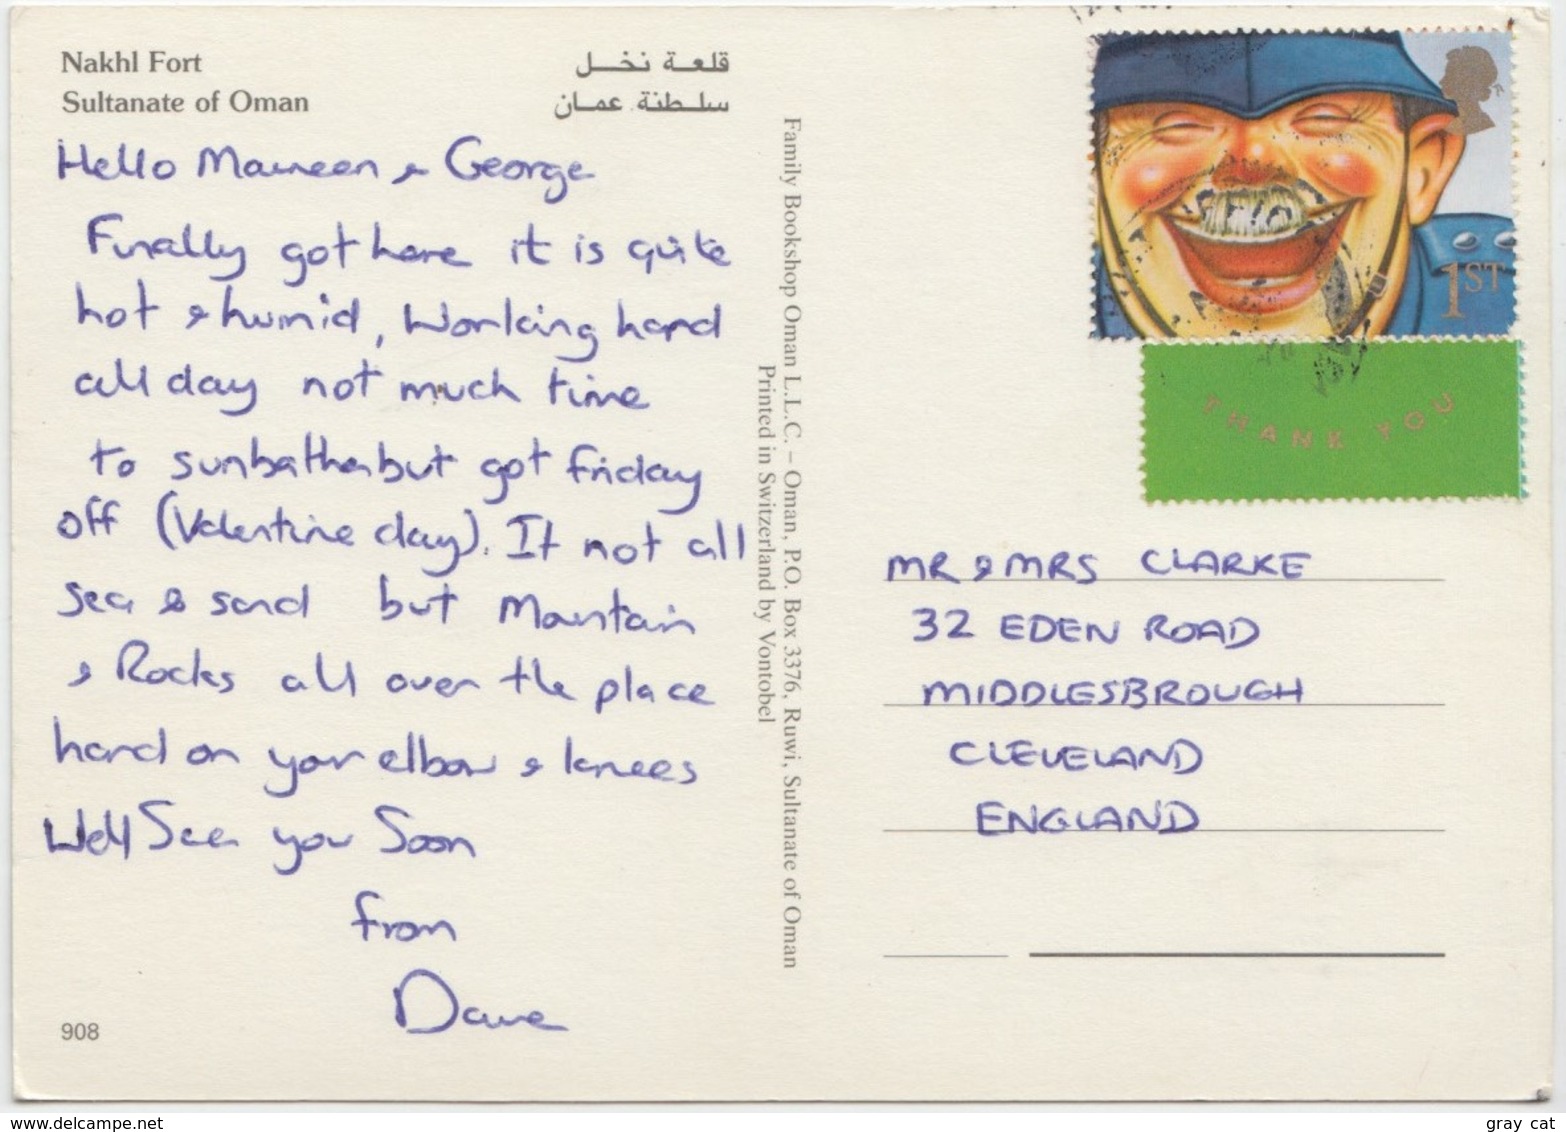 Nakhl Fort
Sultanate of Oman
قلعة نخل
سلطنة عمان
Hello Maureen & George
Finally got here it is quite
hot & humid, Working hard
all day not much time
to sunbathe but got friday
off (Valentine day). It not all
sea & sand but Mountain
& Rocks all over the place
hard on your elbow & knees
Well See you Soon
from
Dave
908
Family Bookshop Oman L.L.C. – Oman, P.O. Box 3376, Ruwi, Sultanate of Oman
Printed in Switzerland by Vontobel
1ST
THANK YOU
MR & MRS CLARKE
32 EDEN ROAD
MIDDLESBROUGH
CLEVELAND
ENGLAND
www.delcampe.net
gray cat